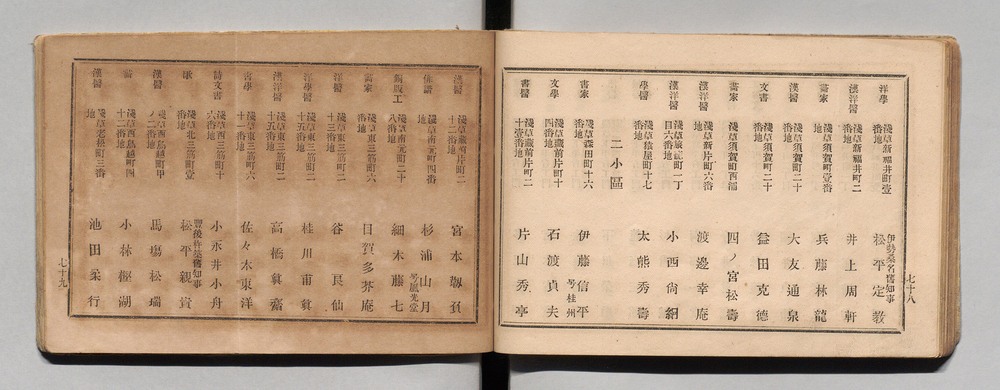 洋學 淺草新福井町壹番地 伊勢桑名舊知事 松平定教
漢洋醫 淺草新福井町二番地 井上周軒
畫家 淺草須賀町壹番地 兵藤林龍
漢醫 淺草須賀町二十番地 大友通泉
文書 淺草須賀町二十番地 益田克德
畫家 淺草須賀町百 四ノ宮松壽
漢洋醫 淺草新片町六番地 渡邊幸庵
漢洋醫 淺草 町一丁目六番地 小西尙絅
學醫 淺草 町十七番地 太熊秀壽
二小區
書家 淺草森田町十六番地 伊藤信平 号桂州
文學 淺草藏前片町二十四番地 石渡貞夫
書醫 淺草藏前片町二十壹番地 片山秀亭
七十八
漢醫 淺草藏前片町二十二番地 宮本
俳諧 淺草南元町四番地 杉浦山月 号風光堂
銅版工 淺草南元町二十八番地 細木藤七
畫家 淺草東三筋町六番地 日賀多芥庵
漢醫 淺草東三筋町二十三番地 谷良仙
洋學醫 淺草東三筋町二十五番地 桂川甫
漢洋醫 淺草東三筋町二十五番地 高橋 齋
書學 淺草東三筋町六十一番地 佐々木東洋
詩文書 淺草西三筋町十六番地 小永井小舟
歌 淺草北三筋町壹番地 豐後杵築舊知事 松平親貴
漢醫 淺草西鳥越町甲ノ二番地 馬塲松瑞
畫 淺草西鳥越町四十二番地 小林 湖
漢醫 淺草老松町三番地 池田柔行
七十九